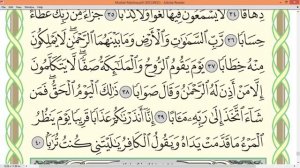 دِهَاقًا ٣٤ لَّا يَسْمَعُونَ فِيهَا لَغْوًا وَلَا كِذَّٰبًا ٣٥ جَزَآءً مِّن رَّبِّكَ عَطَآءً
حِسَابًا ٣٦ رَّبِّ ٱلسَّمَٰوَٰتِ وَٱلْأَرْضِ وَمَا بَيْنَهُمَا ٱلرَّحْمَٰنِ لَا يَمْلِكُونَ
مِنْهُ خِطَابًا ٣٧ يَوْمَ يَقُومُ ٱلرُّوحُ وَٱلْمَلَٰٓئِكَةُ صَفًّا لَّا يَتَكَلَّمُونَ
إِلَّا مَنْ أَذِنَ لَهُ ٱلرَّحْمَٰنُ وَقَالَ صَوَابًا ٣٨ ذَٰلِكَ ٱلْيَوْمُ ٱلْحَقُّ فَمَن
شَآءَ ٱتَّخَذَ إِلَىٰ رَبِّهِۦ مَـَٔابًا ٣٩ إِنَّآ أَنذَرْنَٰكُمْ عَذَابًا قَرِيبًا يَوْمَ يَنظُرُ
ٱلْمَرْءُ مَا قَدَّمَتْ يَدَاهُ وَيَقُولُ ٱلْكَافِرُ يَٰلَيْتَنِى كُنتُ تُرَٰبًۢا ٤٠